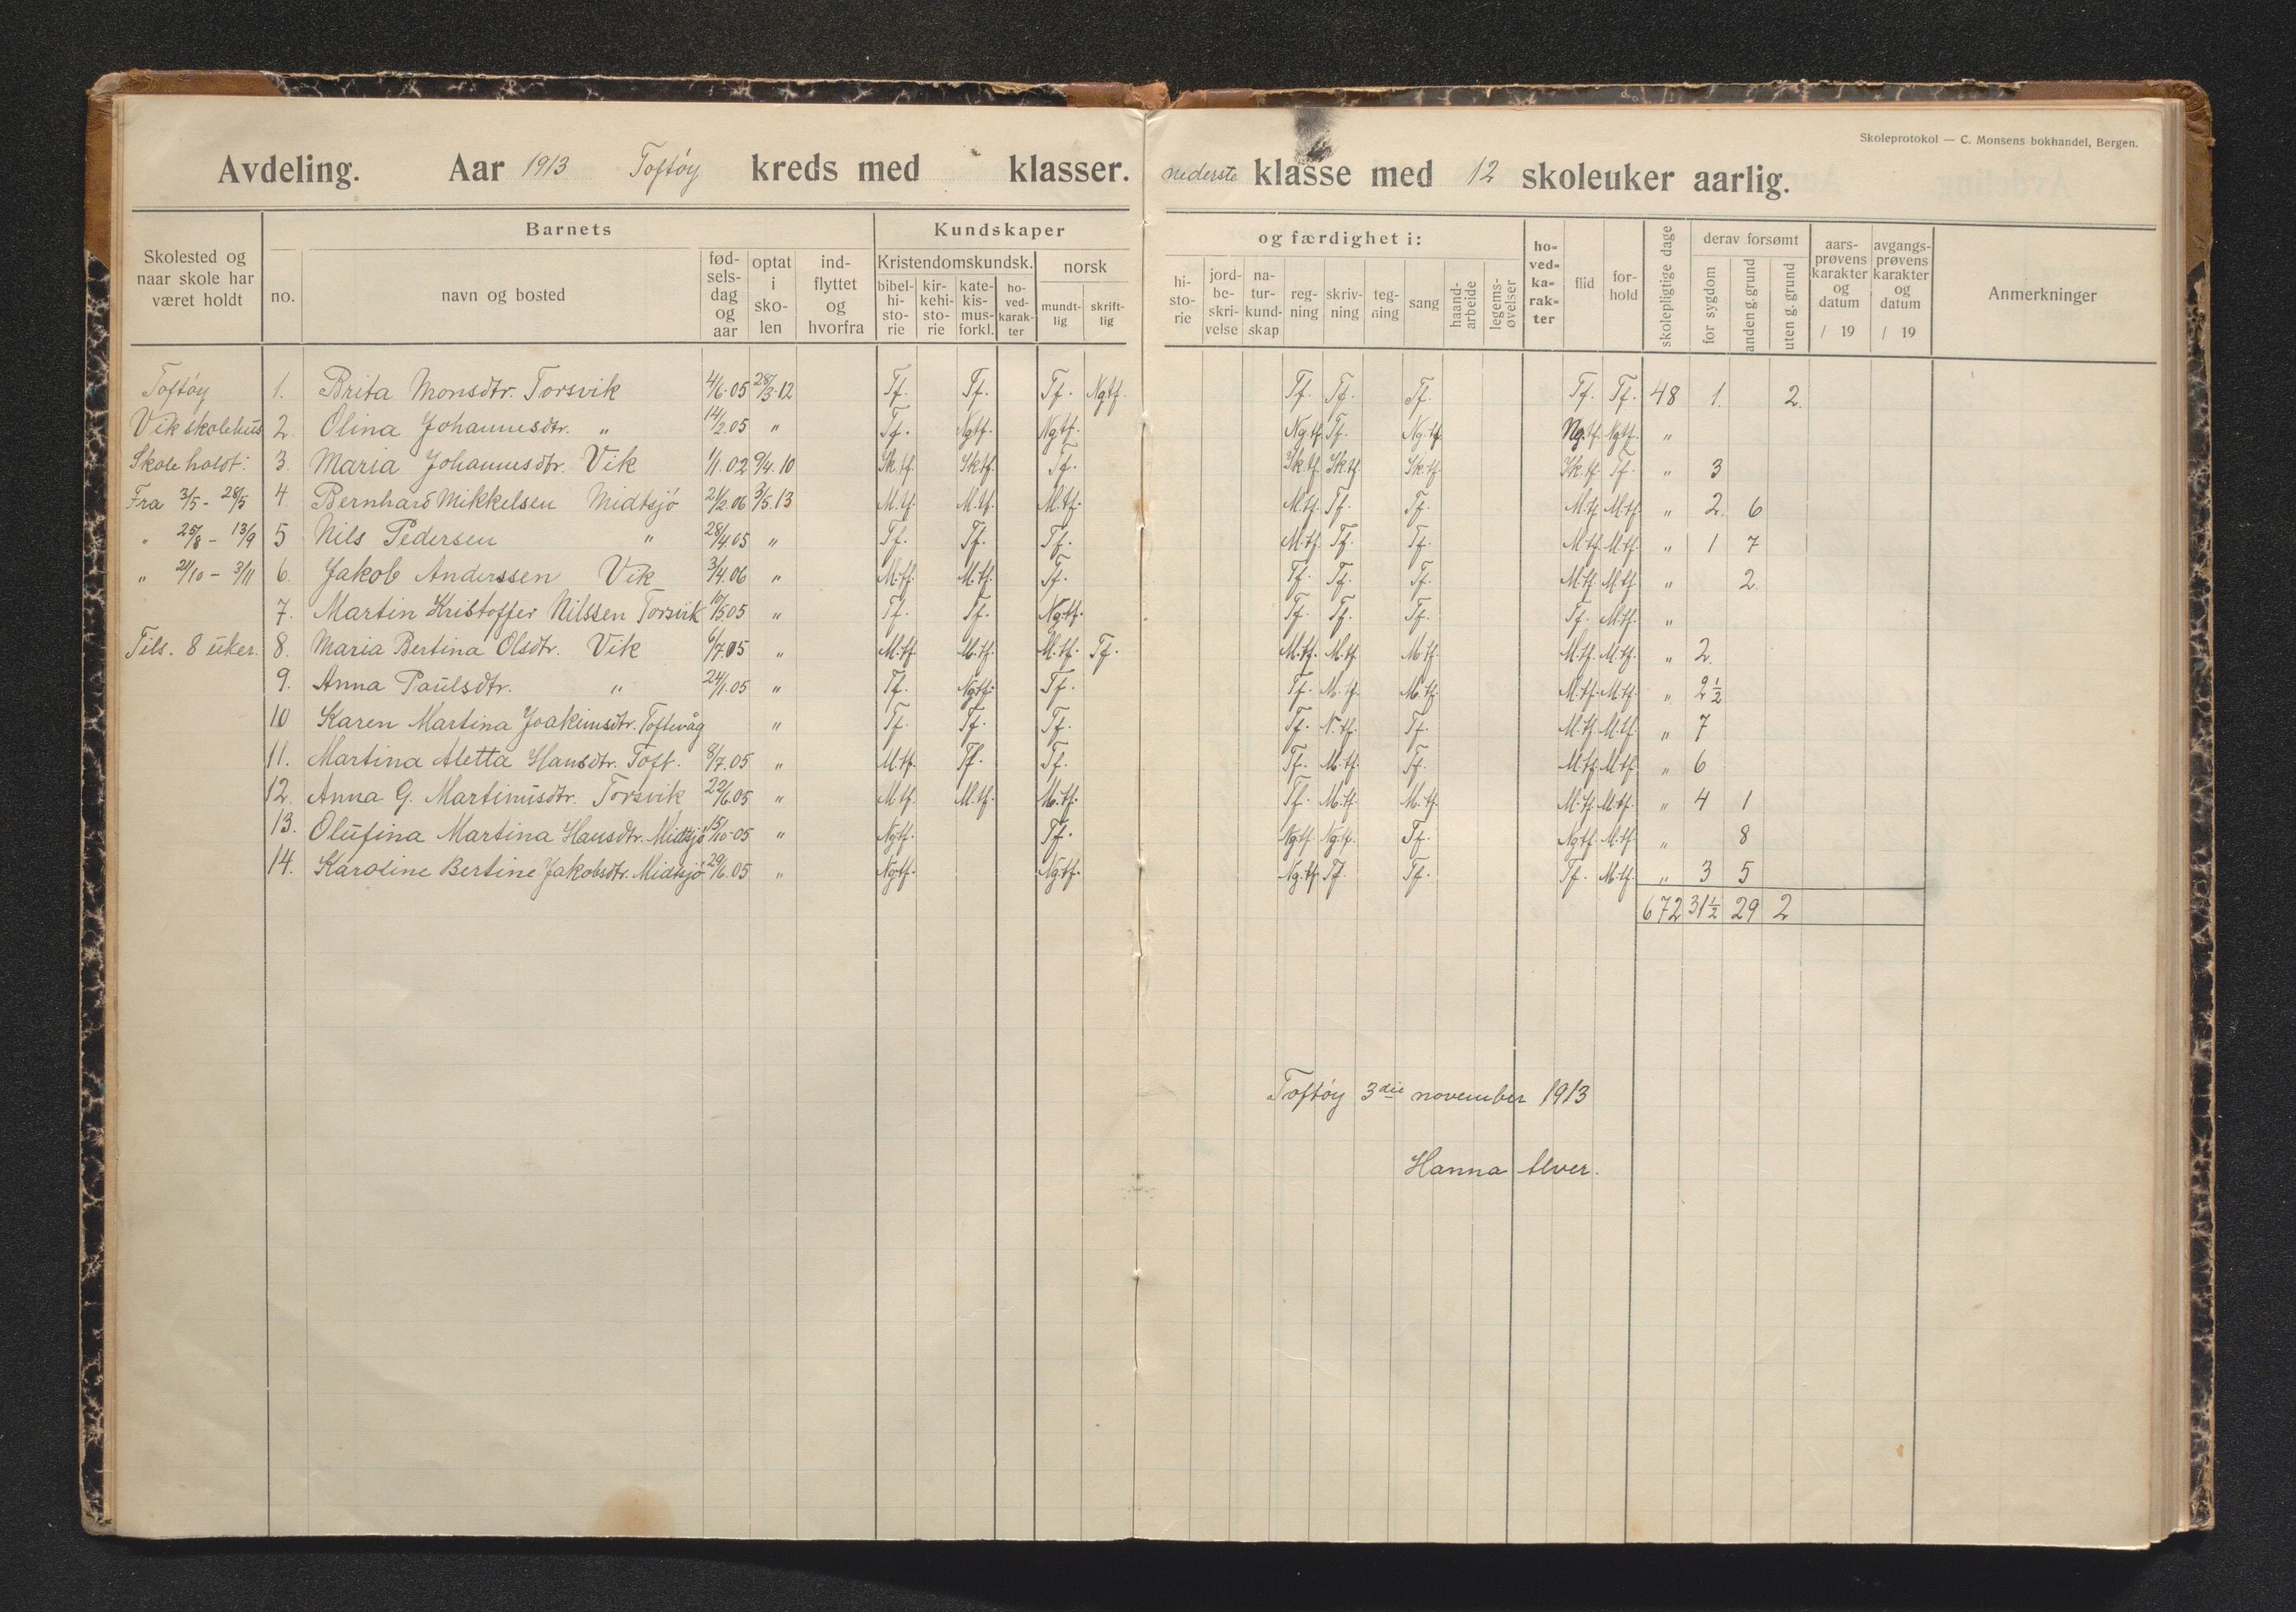 Skoleprotokol — C. Monsens bokhandel, Bergen.
Avdeling. Aar 1913 Toftöy kreds med klasser. nederste klasse med 12 skoleuker aarlig.
Skolested og naar skole har været holdt
Barnets
no.
navn og bosted
fød-sels-dag og aar
optat i sko-len
ind-flyttet og hvorfra
Kundskaper
Kristendomskundsk.
bibel-hi-sto-rie
kir-kehi-sto-rie
kate-kis-mus-forkl.
ho-ved-karak-ter
norsk
mundt-lig
skrift-lig
og færdighet i:
hi-sto-rie
jord-be-skri-velse
na-tur-kund-skap
reg-ning
skriv-ning
teg-ning
sang
haand-arbeide
legems-øvelser
ho-ved-ka-rak-ter
flid
for-hold
skolepligtige dage
derav forsømt
for sygdom
anden g. grund
uten g. grund
aars-prøvens karakter og datum / 19
avgangs-prøvens karakter og datum / 19
Anmerkninger
Toftöy 1. Brita Monsdtr. Torsvik 4/6.05 28/3.12 Tf. Tf. Tf. Ngtf. Tf. Tf. Tf. Tf. Tf. 48 1. 2.
Vik skolehus 2. Olina Johannesdtr. " 14/2.05 " Tf. Ngtf. Ng.tf. Ng.tf. Tf. Ng.tf. Ng.tf. Ngtf. "
Skole holdt: 3. Maria Johannesdtr. Vik 1/1.02 9/4.10 Sk.tf. Sk.tf. Tf. Sk.tf. Sk.tf. Sk.tf. Sk.tf. Tf. " 3
Fra 3/5 - 28/5 4. Bernhard Mikkelsen Midtsjö 21/2.06 3/5.13 M.tf. M.tf. M.tf. M.tf. Tf. Tf. M.tf. M.tf. " 2. 6
" 25/8 - 13/9 5 Nils Pedersen " 28/4.05 " Tf. Tf. Tf. M.tf. Tf. Tf. M.tf. M.tf. " 1 7
" 21/10 - 3/11 6. Jakob Anderssen Vik 3/4.06 " M.tf. M.tf. Tf. Tf. Tf. Tf. M.tf. M.tf. " 2.
7. Martin Kristoffer Nilssen Torsvik 10/5.05 " Tf. Tf. Ng.tf. Tf. Tf. Tf. Tf. M.tf. "
Tils. 8 uker. 8. Maria Bertina Olsdtr. Vik 6/7.05 " M.tf. M.tf. M.tf. Tf. M.tf. M.tf. M.tf. M.tf. M.tf. " 2.
9. Anna Paulsdtr. " 24/1.05 " Tf. Ngtf. Tf. Tf. M.tf. M.tf. M.tf. M.tf. " 2½
10 Karen Martina Joakimsdtr. Toftevåg " Tf. Tf. Tf. Tf. M.tf. Tf. M.tf. M.tf. " 7
11. Martina Aletta Hansdtr. Toft. 8/7.05 " M.tf. Tf. Tf. Tf. M.tf. Tf. M.tf. M.tf. " 6
12. Anna G. Martinusdtr. Torsvik 22/6.05 " M.tf. M.tf. M.tf. Tf. M.tf. M.tf. M.tf. M.tf. " 4 1
13. Olufina Martina Hansdtr. Midtsjö 15/10.05 " Ngtf. Tf. Ngtf. Ng.tf. Tf. Ngtf. M.tf. " 8
14. Karoline Bertine Jakobsdtr. Midtsjö 29/6.05 " Ngtf. Ngtf. Ng.tf. Tf. Tf. Tf. M.tf. " 3 5
672 31½ 29 2
Toftöy 3die november 1913
Hanna Alver.